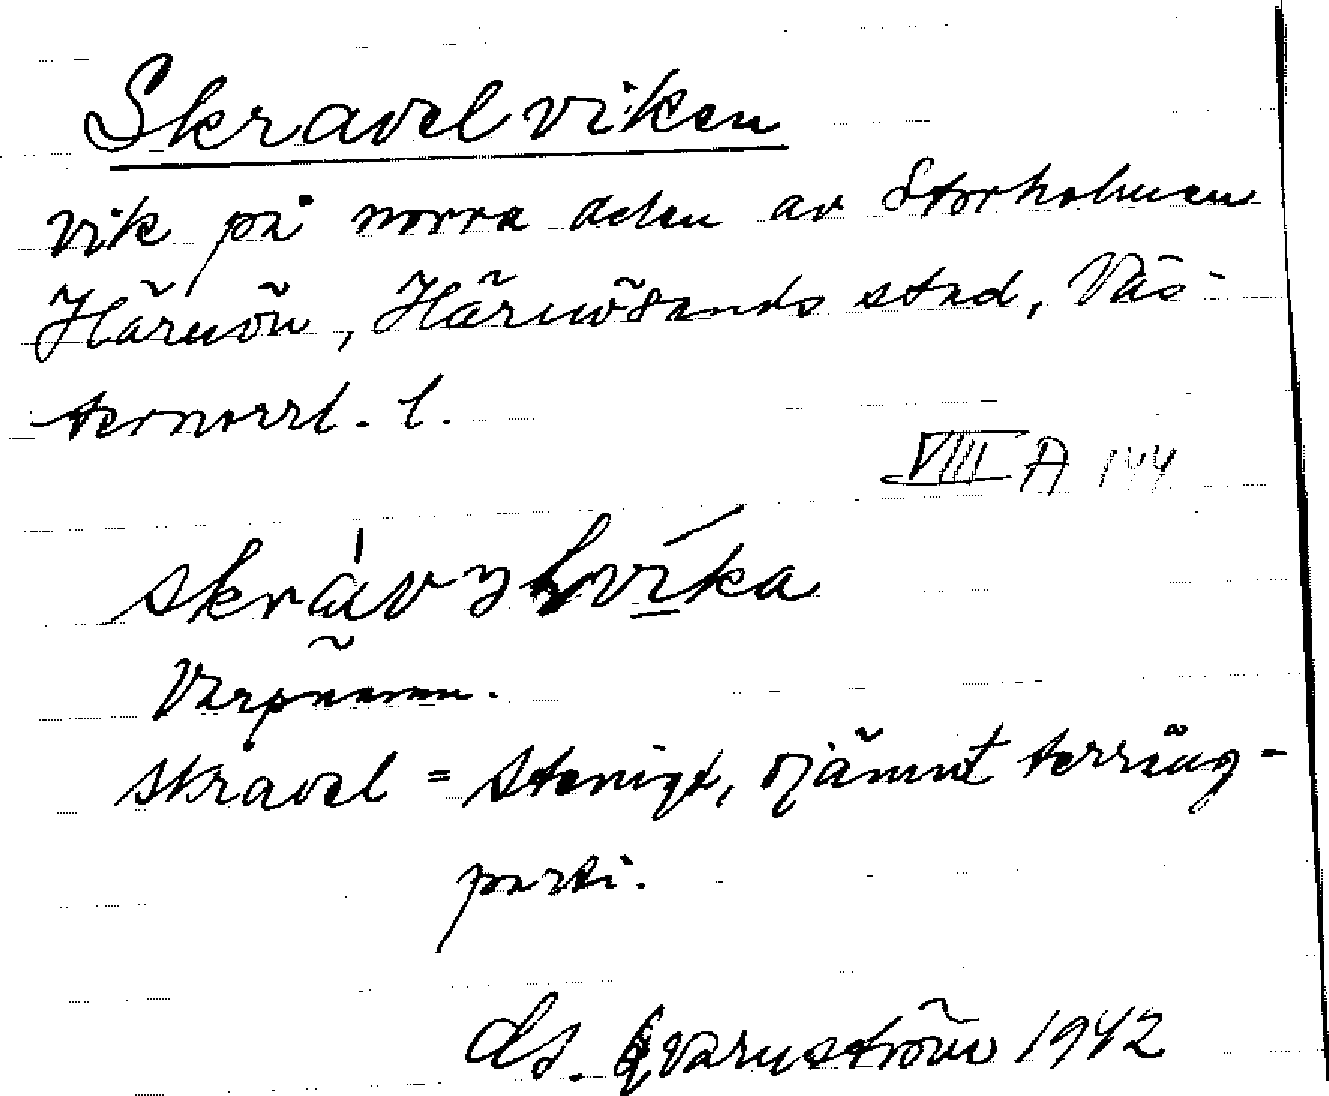 Skravelviken
vik på norra delen av Storholmen
Härnön, Härnösands stad, Väs-
ternorrl. l.
VIII A 144
Varpnamn.
skravel = stenigt, ojämnt terräng-
parti.
Qvarnström 1942